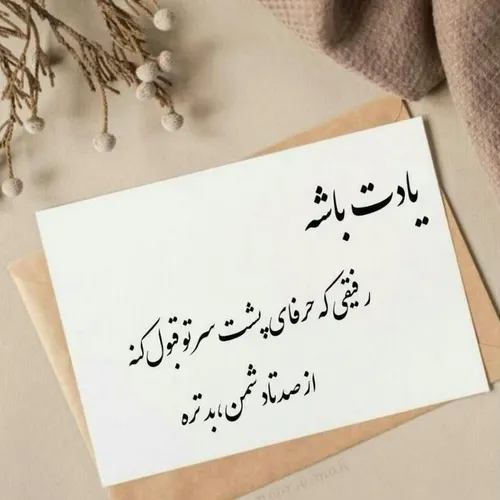 یادت باشه
رفیقی که حرفای پشت سرتو قبول کنه
از صدتا دشمن، بدتره